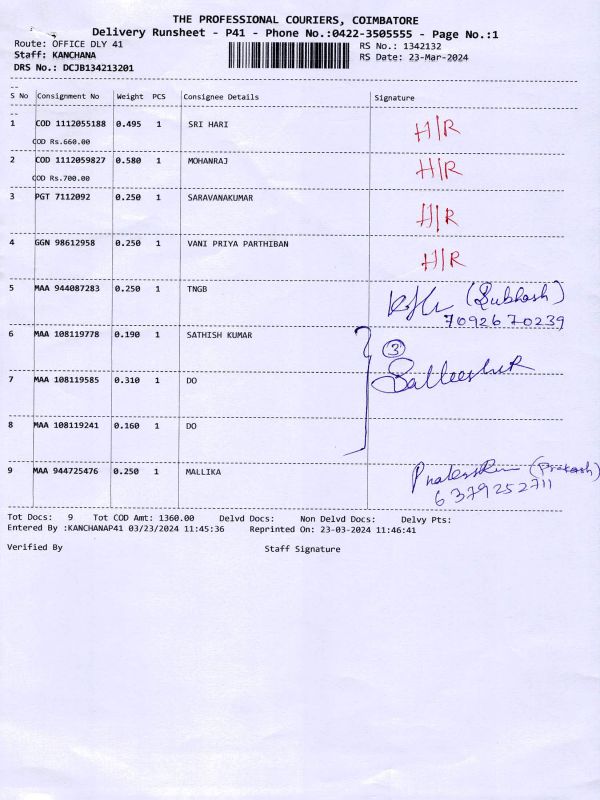 THE PROFESSIONAL COURIERS, COIMBATORE
Delivery Runsheet - P41 - Phone No.:0422-3505555 - Page No.:1
Route: OFFICE DLY 41 RS No.: 1342132
Staff: KANCHANA RS Date: 23-Mar-2024
DRS No.: DCJB134213201
S No Consignment No Weight PCS Consignee Details Signature
1 COD 1112055188 0.495 1 SRI HARI H/R
COD Rs.660.00
2 COD 1112059827 0.580 1 MOHANRAJ H/R
COD Rs.700.00
3 PGT 7112092 0.250 1 SARAVANAKUMAR H/R
4 GGN 98612958 0.250 1 VANI PRIYA PARTHIBAN H/R
5 MAA 944087283 0.250 1 TNGB (Subhash)
7092670239
6 MAA 108119778 0.190 1 SATHISH KUMAR 3
7 MAA 108119585 0.310 1 DO
8 MAA 108119241 0.160 1 DO
9 MAA 944725476 0.250 1 MALLIKA (Prakash)
6379252711
Tot Docs: 9 Tot COD Amt: 1360.00 Delvd Docs: Non Delvd Docs: Delvy Pts:
Entered By :KANCHANAP41 03/23/2024 11:45:36 Reprinted On: 23-03-2024 11:46:41
Verified By Staff Signature